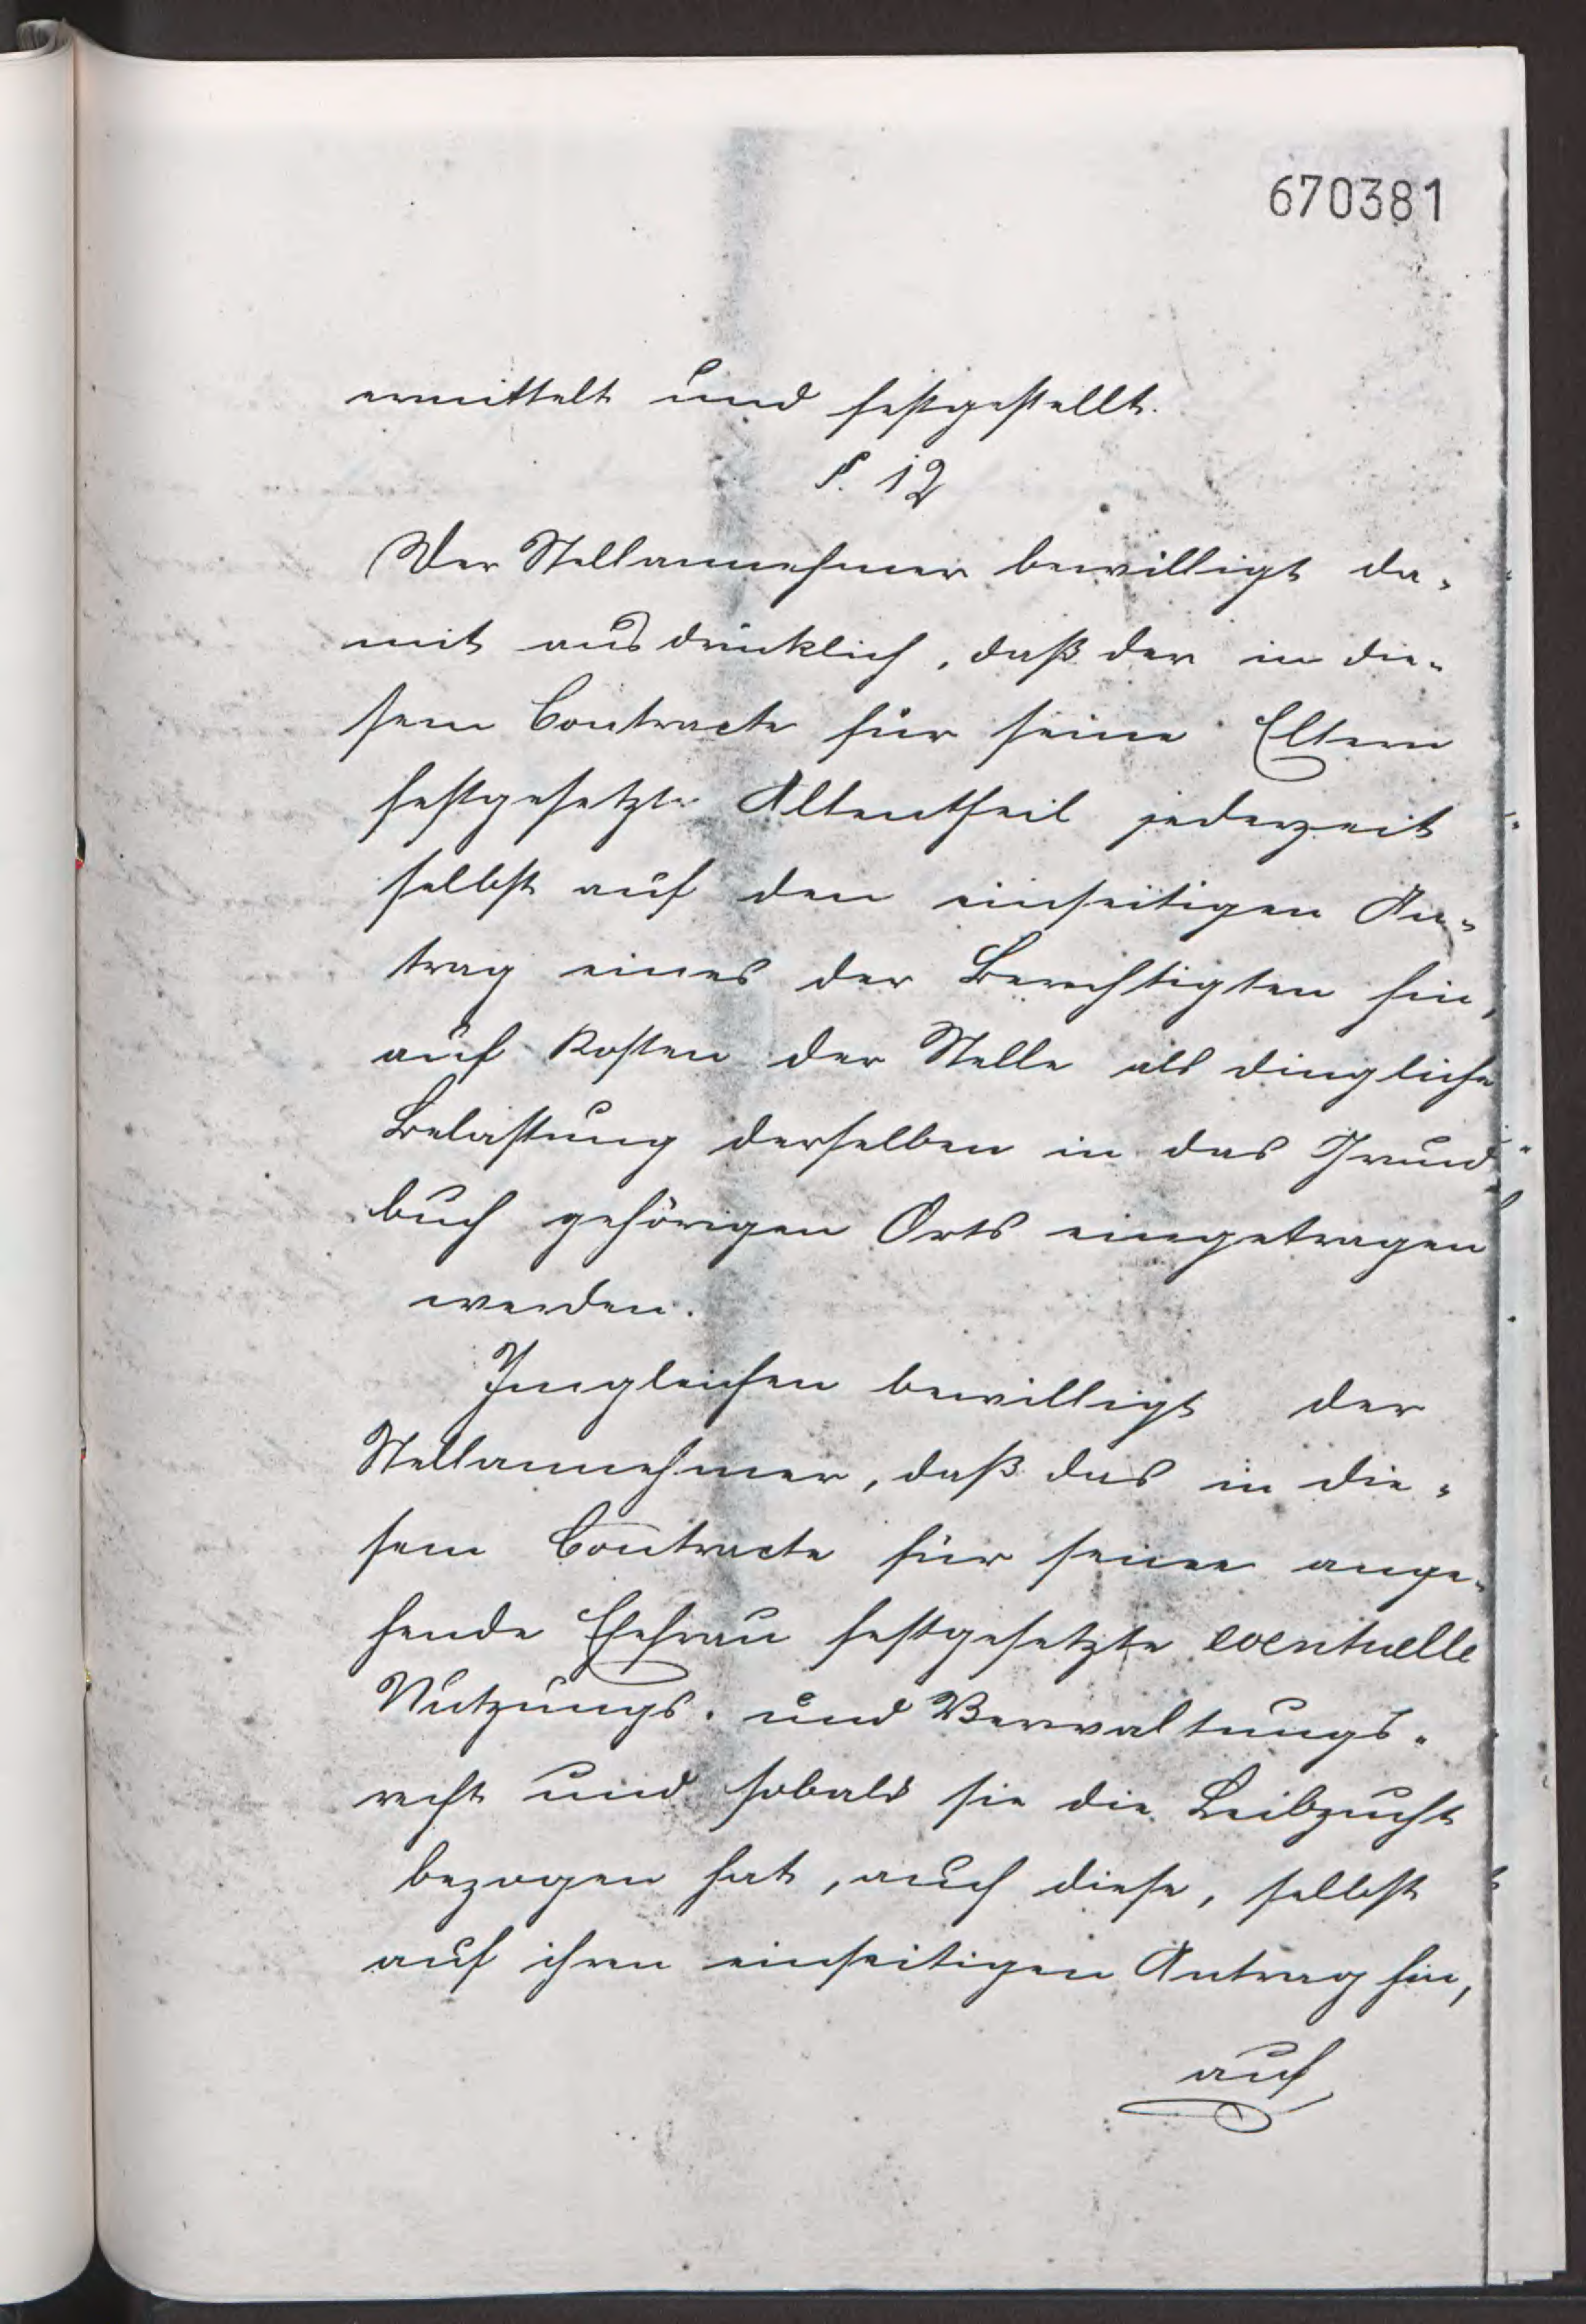 670381
ermittelt und festgestellt.
§. 12
Der Stellannehmer bewilligt da-
mit ausdrücklich, daß der in die-
sem Contracte für seine Eltern
festgesetzte Altentheil jederzeit
selbst auf den einseitigen An-
trag eines der Berechtigten hin,
auf Kosten der Stelle als dingliche
Belastung derselben in das Grund-
buch gehörigen Orts eingetragen
werden.
Ingleichen bewilligt der
Stellannehmer, daß das in die-
sem Contracte für seine ange-
hende Ehefrau festgesetzte eventuelle
Nutzungs- und Verwaltungs-
recht und sobald sie die Leibzucht
bezogen hat, auch diese, selbst
auf ihren einseitigen Antrag hin,
auf